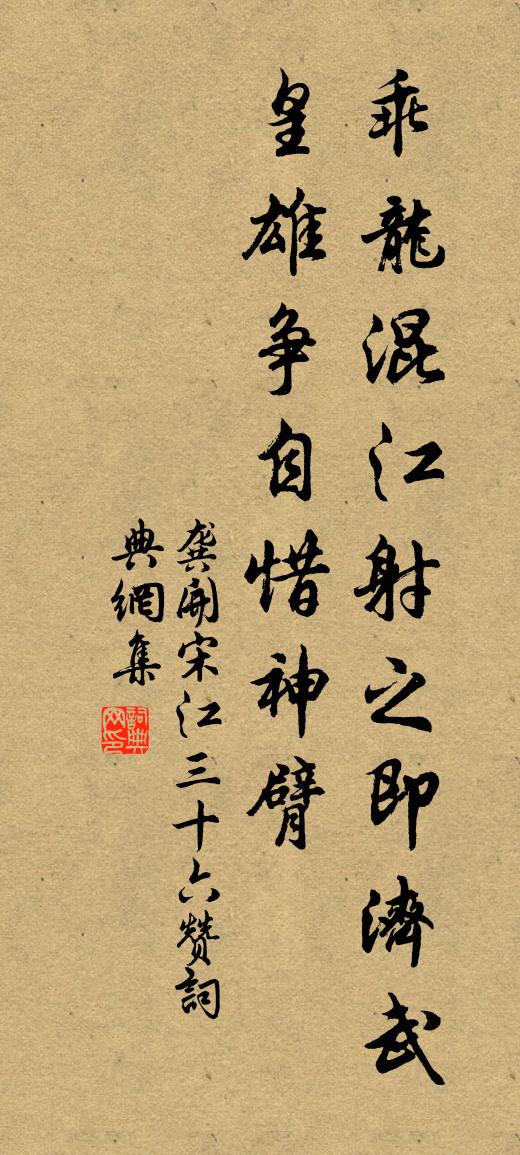 乖龍混江射之即濟武
皇雄争自惜神臂
龔開宋江三十六赞詞
典網集
詞典
网印